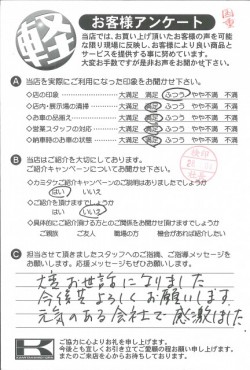 軽
お客様アンケート
当店では、お買い上げ頂いたお客様の声を可能
な限り現場に反映し、お客様により良い商品と
サービスを提供する事に努めています。
大変お手数ですが是非お声をお聞かせ下さい。
A 当店を実際にご利用になった印象をお聞かせ下さい。
◇店の印象 大満足 満足 ふつう やや不満 不満
◇店内・展示場の清掃 大満足 満足 ふつう やや不満 不満
◇お車の品揃え 大満足 満足 ふつう やや不満 不満
◇営業スタッフの対応 大満足 満足 ふつう やや不満 不満
◇納車時のお車の状態 大満足 満足 ふつう やや不満 不満
B 当店はご紹介を大切にしております。
ご紹介キャンペーンについてお聞かせ下さい。
◇カミタケご紹介キャンペーンのご説明はありましたでしょうか
はい いいえ
◇ご紹介を頂けますでしょうか
はい いいえ
◇具体的にご紹介頂ける方とのご関係をお聞かせ頂けますでしょうか
ご親族 ご友人 職場の方 機会があれば紹介したい
C 担当させて頂きましたスタッフへのご指摘、ご指導メッセージを
お願いします。応援メッセージもぜひお願いします。
大変お世話になりました
今後もよろしくお願いします
元気のある会社で感激しました
K
ご協力に心よりお礼を申し上げます。
今後とも宜しくお引き立てご愛顧の程お願い申し上げます。
またのご来店を心からお待ちしております。